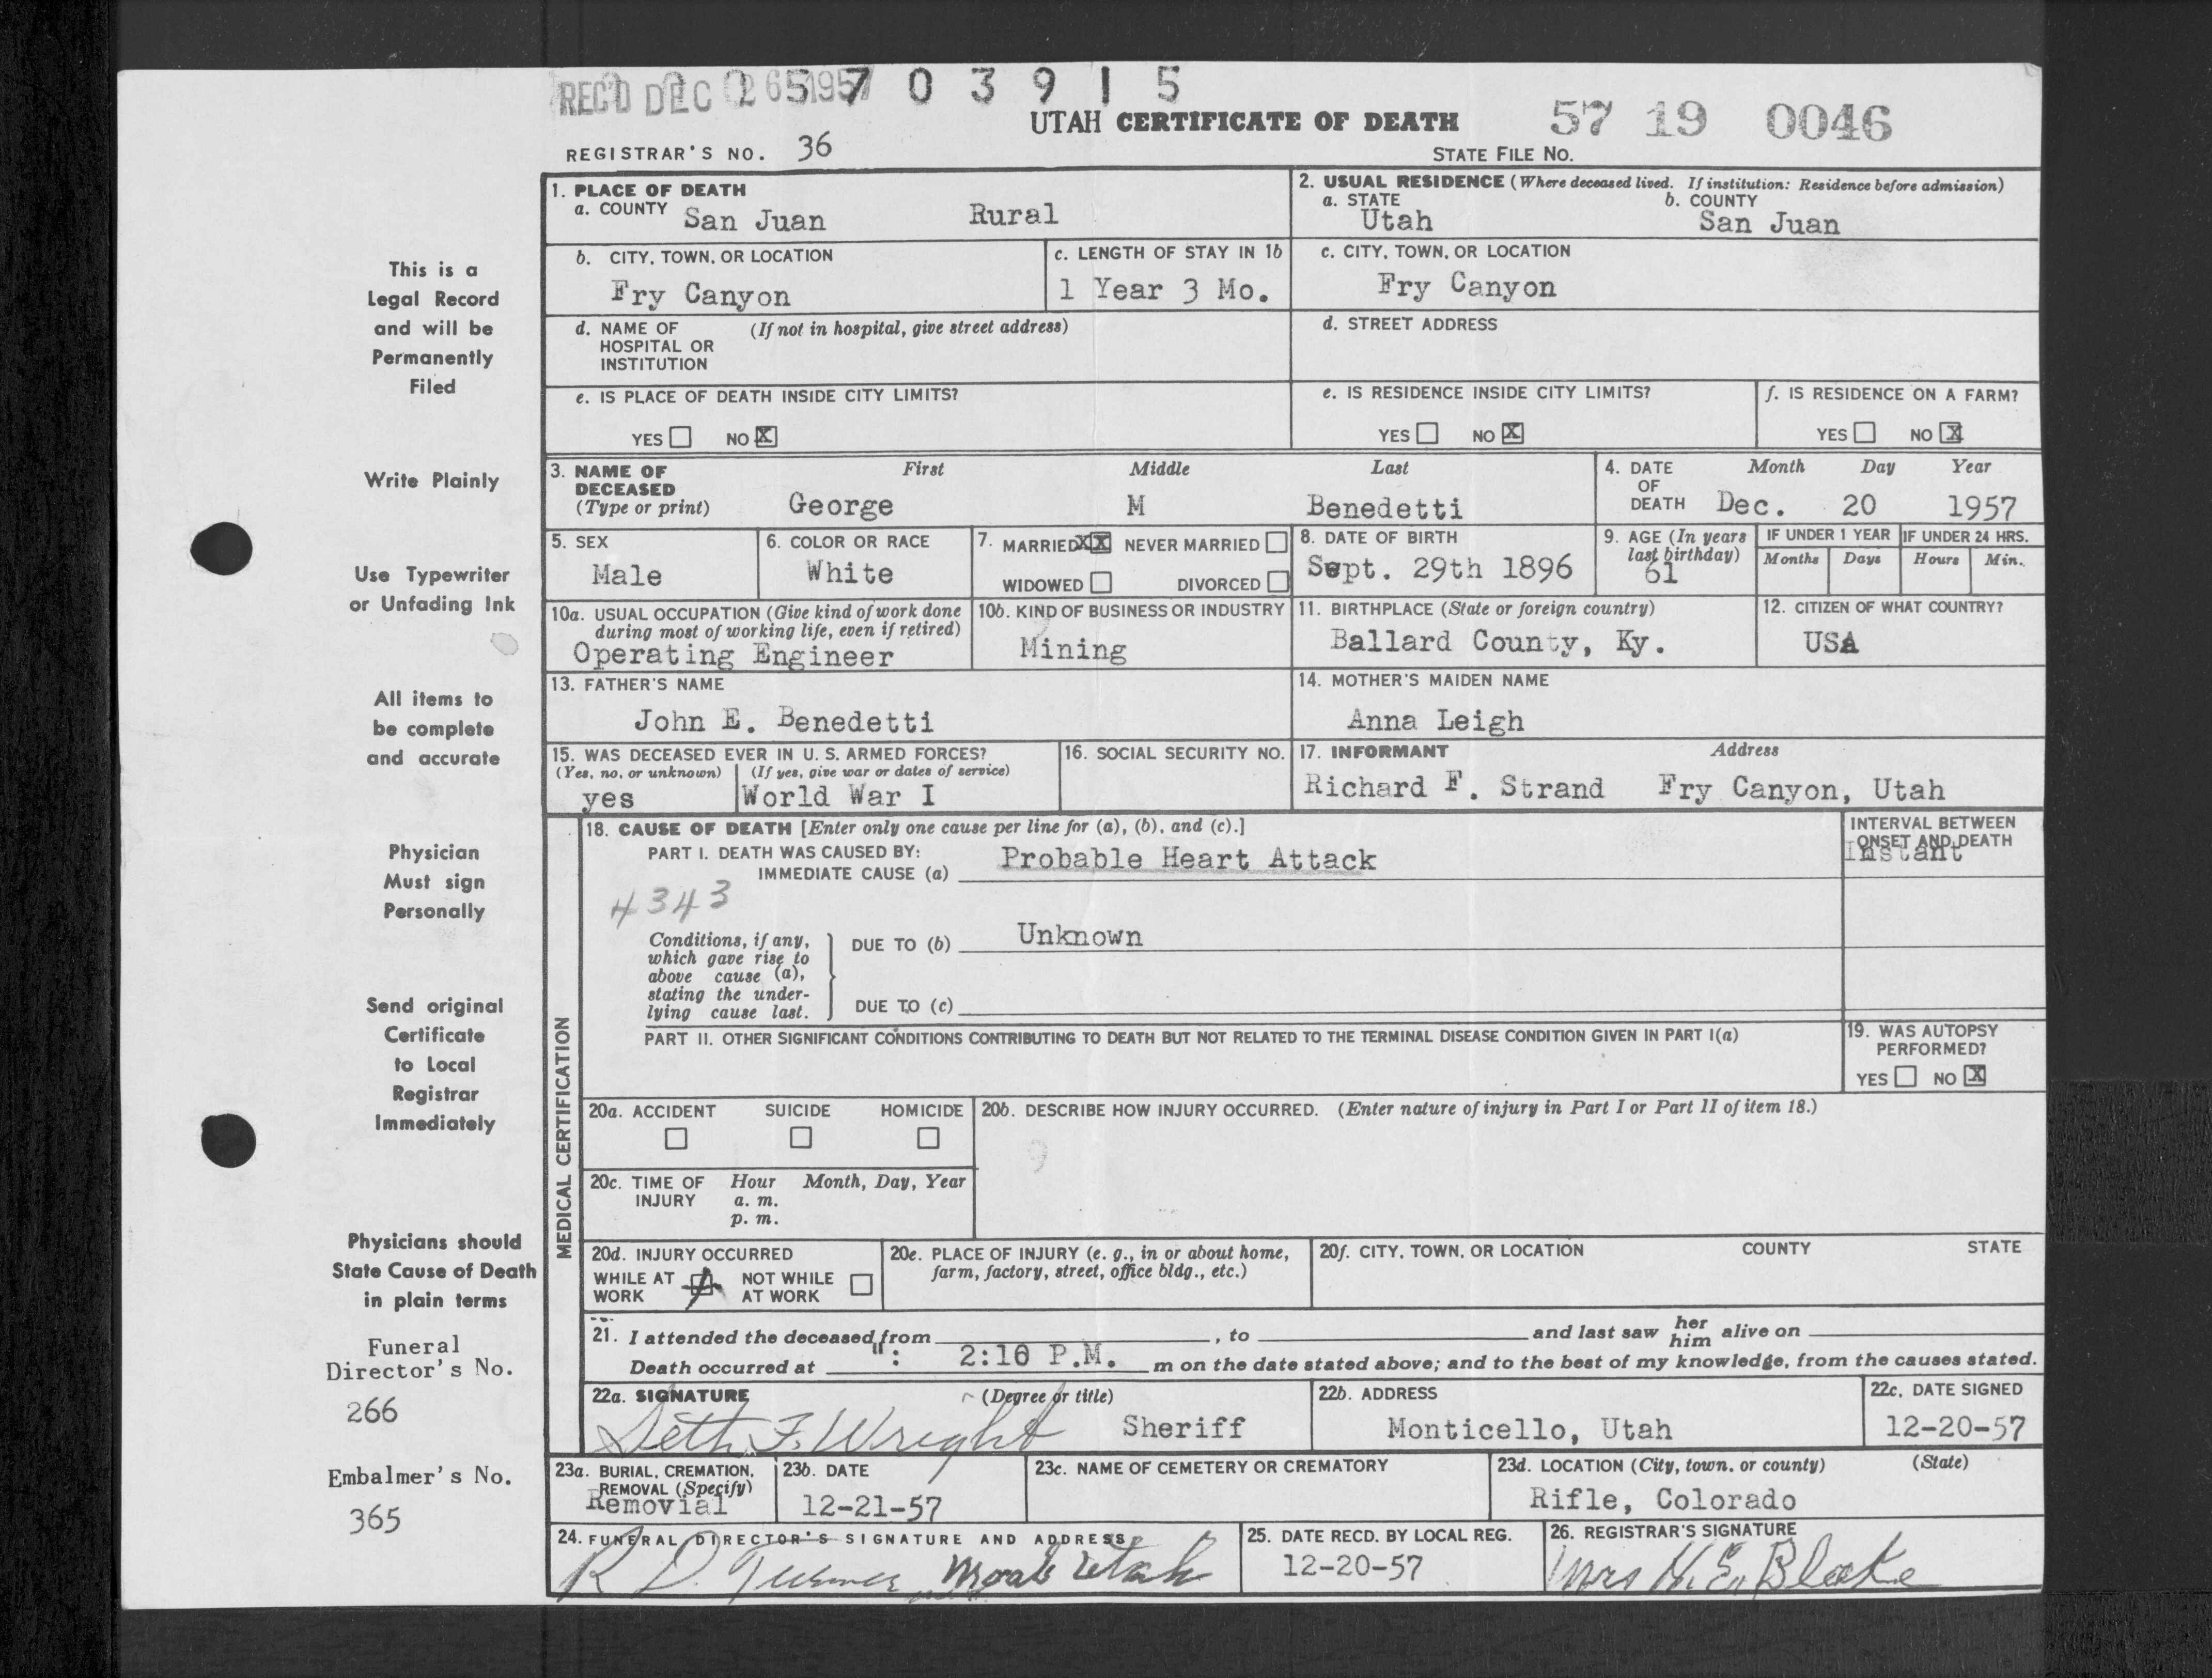 REC'D DEC 26 1957 0 3 9 1 5
UTAH CERTIFICATE OF DEATH 57 19 0046
REGISTRAR'S NO. 36 STATE FILE NO.
1. PLACE OF DEATH
a. COUNTY San Juan Rural
2. USUAL RESIDENCE (Where deceased lived. If institution: Residence before admission)
a. STATE Utah b. COUNTY San Juan
b. CITY, TOWN, OR LOCATION Fry Canyon
c. LENGTH OF STAY IN 1b 1 Year 3 Mo.
c. CITY, TOWN, OR LOCATION Fry Canyon
d. NAME OF HOSPITAL OR INSTITUTION (If not in hospital, give street address)
d. STREET ADDRESS
e. IS PLACE OF DEATH INSIDE CITY LIMITS?
YES NO X
e. IS RESIDENCE INSIDE CITY LIMITS?
YES NO X
f. IS RESIDENCE ON A FARM?
YES NO X
3. NAME OF DECEASED (Type or print) First Middle Last
George M Benedetti
4. DATE OF DEATH Month Day Year
Dec. 20 1957
5. SEX Male
6. COLOR OR RACE White
7. MARRIED XX NEVER MARRIED
WIDOWED DIVORCED
8. DATE OF BIRTH Sept. 29th 1896
9. AGE (In years last birthday) 61
IF UNDER 1 YEAR Months Days
IF UNDER 24 HRS. Hours Min.
10a. USUAL OCCUPATION (Give kind of work done during most of working life, even if retired)
Operating Engineer
10b. KIND OF BUSINESS OR INDUSTRY Mining
11. BIRTHPLACE (State or foreign country) Ballard County, Ky.
12. CITIZEN OF WHAT COUNTRY? USA
13. FATHER'S NAME John E. Benedetti
14. MOTHER'S MAIDEN NAME Anna Leigh
15. WAS DECEASED EVER IN U. S. ARMED FORCES?
(Yes, no, or unknown) yes (If yes, give war or dates of service) World War I
16. SOCIAL SECURITY NO.
17. INFORMANT Address
Richard F. Strand Fry Canyon, Utah
MEDICAL CERTIFICATION
18. CAUSE OF DEATH [Enter only one cause per line for (a), (b), and (c).]
PART I. DEATH WAS CAUSED BY:
IMMEDIATE CAUSE (a) Probable Heart Attack
INTERVAL BETWEEN ONSET AND DEATH
Instant
4343
Conditions, if any, which gave rise to above cause (a), stating the underlying cause last.
DUE TO (b) Unknown
DUE TO (c)
PART II. OTHER SIGNIFICANT CONDITIONS CONTRIBUTING TO DEATH BUT NOT RELATED TO THE TERMINAL DISEASE CONDITION GIVEN IN PART I(a)
19. WAS AUTOPSY PERFORMED?
YES NO X
20a. ACCIDENT SUICIDE HOMICIDE
20b. DESCRIBE HOW INJURY OCCURRED. (Enter nature of injury in Part I or Part II of item 18.)
20c. TIME OF INJURY Hour a. m. p. m. Month, Day, Year
20d. INJURY OCCURRED
WHILE AT WORK NOT WHILE AT WORK
20e. PLACE OF INJURY (e. g., in or about home, farm, factory, street, office bldg., etc.)
20f. CITY, TOWN, OR LOCATION COUNTY STATE
21. I attended the deceased from , to and last saw her him alive on
Death occurred at ": 2:10 P.M. m on the date stated above; and to the best of my knowledge, from the causes stated.
22a. SIGNATURE (Degree or title)
Seth F. Wright Sheriff
22b. ADDRESS Monticello, Utah
22c. DATE SIGNED 12-20-57
23a. BURIAL, CREMATION, REMOVAL (Specify) Removial
23b. DATE 12-21-57
23c. NAME OF CEMETERY OR CREMATORY
23d. LOCATION (City, town, or county) (State)
Rifle, Colorado
24. FUNERAL DIRECTOR'S SIGNATURE AND ADDRESS
R D. Turner Moab Utah
25. DATE RECD. BY LOCAL REG. 12-20-57
26. REGISTRAR'S SIGNATURE
Mrs H. E. Blake
This is a
Legal Record
and will be
Permanently
Filed
Write Plainly
Use Typewriter
or Unfading Ink
All items to
be complete
and accurate
Physician
Must sign
Personally
Send original
Certificate
to Local
Registrar
Immediately
Physicians should
State Cause of Death
in plain terms
Funeral
Director's No.
266
Embalmer's No.
365